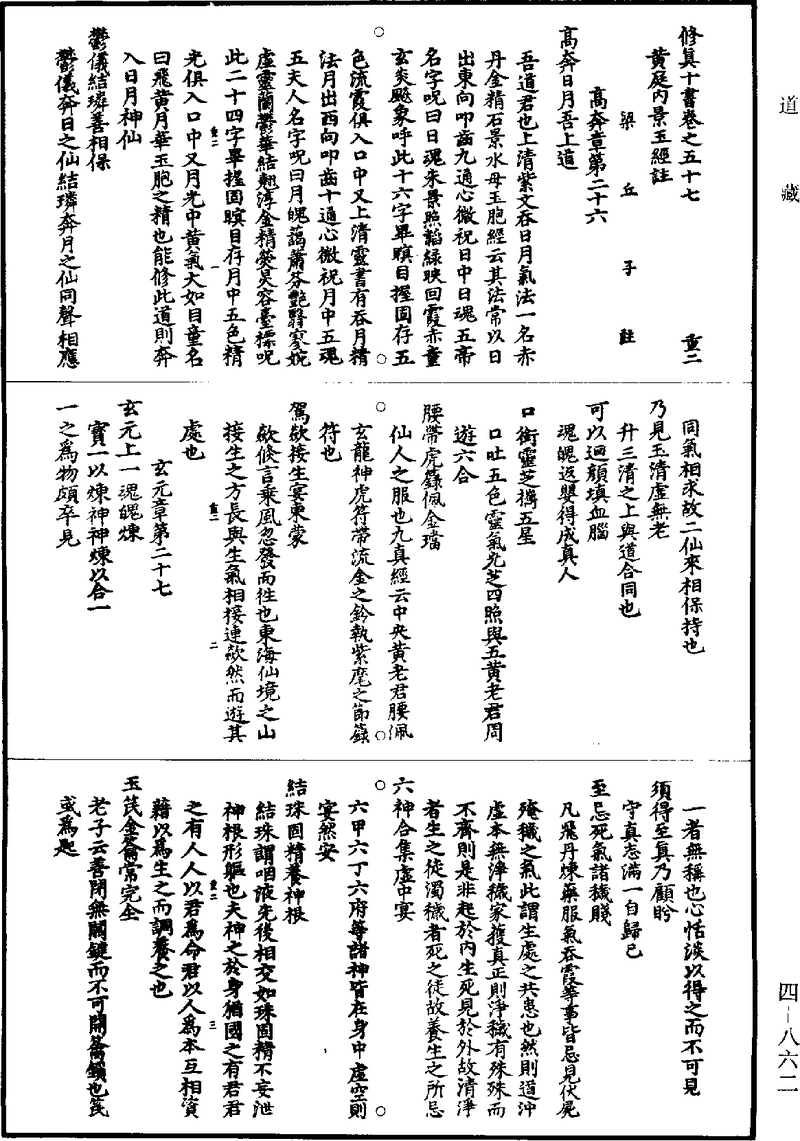 道藏
修真十書卷之五十七 重二
黃庭內景玉經註
梁丘子註
高奔章第二十六
高奔日月吾上道
吾道君也上清紫文吞日月氣法一名赤
丹金精石景水母玉胞經云其法常以日
出東向叩齒九通心微祝日中日魂五帝
名字呪曰日魂朱景照韜綠映回霞赤童
玄炎飈象呼此十六字畢瞑目握固存五
色流霞俱入口中又上清靈書有吞月精
法月出西向叩齒十通心微祝月中五魂
五夫人名字呪曰月魄藹蕭芬艷翳寥婉
虛靈蘭鬱華結翹淳金精熒炅容臺標呪
此二十四字畢握固瞑目存月中五色精
光俱入口中又月光中黃氣大如目童名
曰飛黃月華玉胞之精也能修此道則奔
入日月神仙
鬱儀結璘善相保
鬱儀奔日之仙結璘奔月之仙同聲相應
同氣相求故二仙來相保持也
乃見玉清虛無老
升三清之上與道合同也
可以迴顏填血腦
魂魄返嬰得成真人
口銜靈芝攜五星
口吐五色靈氣光芝四照與五黃老君周
遊六合
腰帶虎籙佩金璫
仙人之服也九真經云中央黃老君腰佩
玄龍神虎符帶流金之鈴執紫麾之節籙
符也
駕欻接生宴東蒙
欻倏言乘風忽發而往也東海仙境之山
接生之方長與生氣相接連欻然而遊其
處也
玄元章第二十七
玄元上一魂魄煉
寶一以煉神神煉以合一
一之為物頗卒見
一者無稱也心恬淡以得之而不可見
須得至真乃顧眄
守真志滿一自歸己
至忌死氣諸穢賤
凡飛丹煉藥服氣吞霞等事皆忌見伏屍
殗穢之氣此謂生處之共患也然則道沖
虛本無淨穢家獲真正則淨穢有殊殊而
不齊則是非起於內生死見於外故清淨
者生之徒濁穢者死之徒故養生之所忌
六神合集虛中宴
六甲六丁六府等諸神皆在身中虛空則
宴然安
結珠固精養神根
結珠謂咽液先後相交如珠固精不妄泄
神根形軀也夫神之於身猶國之有君君
之有人人以君為命君以人為本互相資
藉以為生之而調養之也
玉茂金籥常完全
老子云善閉無關鍵而不可開籥鎖也茂
或為匙
重二 一
重二 二
重二 三
四–八六二